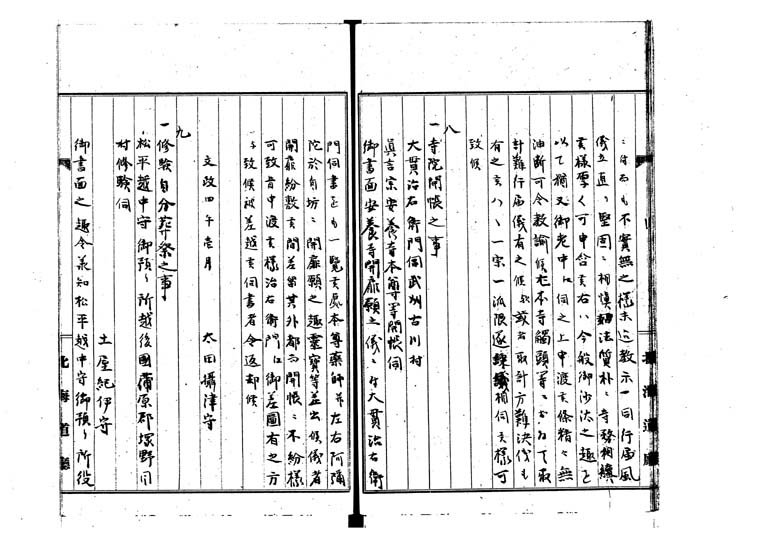 ニ付而も不實無之様末迠教示一同行届風
儀立直リ堅固ニ相慎ミ法質朴ニ寺務相續
文様厚く可申含亥右ハ今般御沙汰之趣を
以て猶又御老中江伺之上申渡亥條精々無
油断可令教諭候尤本寺觸頭等ニおゐて取
計難行届儀有之候歟或ハ取計方難決伐も
有之亥ハヽ一宗一派限遂 相伺亥様可
致候
八
一寺院開帳之事
大貫治右衛門伺武州古川村
眞言宗安養寺本尊等開帳伺
御書面安養寺開扉願之儀ニ付大貫治右衛
門伺書とも一覧亥處本尊藥師并左右阿彌
陀於自坊ニ開扉願之趣靈寳等差出候儀者
開扉紛敷亥間差留其外都而開帳ニ不紛様
可致旨申渡亥様治右衛門江御差圖有之方
与致候被差越亥伺書者令返却候
文政四午壱月 太田攝津守
九
一修験自分葬祭之事
松平越中守御預リ所越後國蒲原郡塚野目
村修験伺
土屋紀伊守
御書面之趣令承知松平越中守御預リ所役
北海道廳
北海道廳